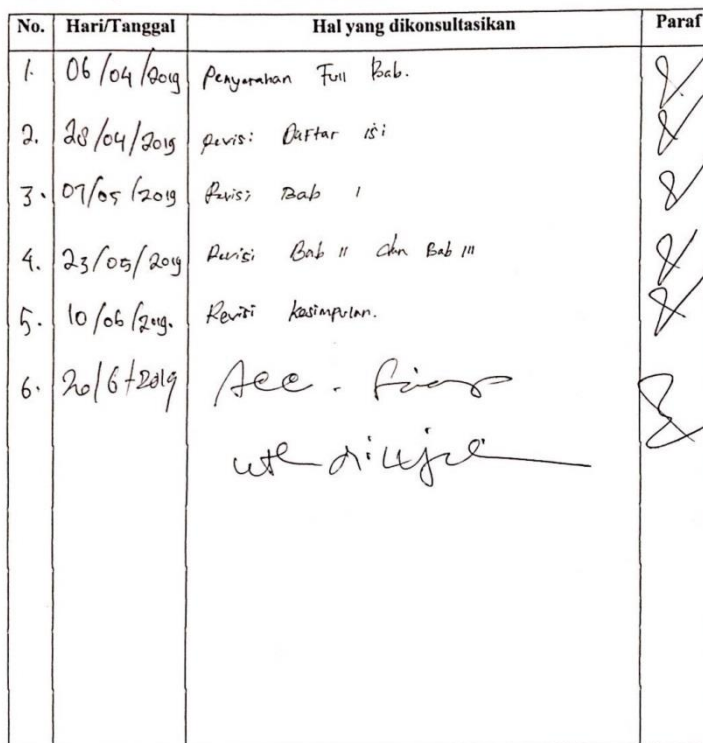 No. Hari/Tanggal Hal yang dikonsultasikan Paraf
1. 06/04/2019 Penyerahan Full Bab.
2. 28/04/2019 Revisi Daftar isi
3. 07/05/2019 Revisi Bab I
4. 23/05/2019 Revisi Bab II dan Bab III
5. 10/06/2019. Revisi kesimpulan.
6. 20/6-2019 Acc. Siap
utk diujikan